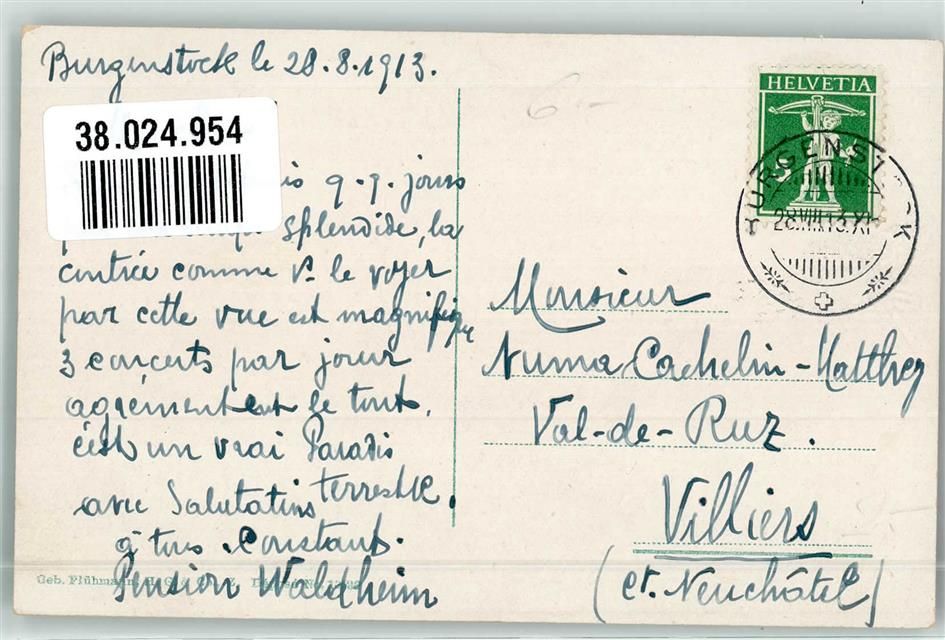 Burgenstock le 28.8.1913.
38.024.954
q.q. jours
splendide, la
contrée comme V. le voyez
par cette vue est magnifique
3 concerts par jour
agrémentent le tout,
c'est un vrai Paradis
terrestre.
avec Salutations
à tous. Constant.
Pension Waldheim
Geb. Flühmann
HELVETIA
BURGENSTOCK
28.VIII.13.XI
Monsieur
Numa Cachelin-Matthey
Val-de-Ruz.
Villiers
(Ct. Neuchâtel)